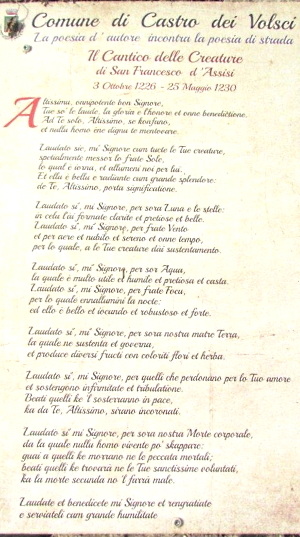 Comune di Castro dei Volsci
La poesia d'autore incontra la poesia di strada
Il Cantico delle Creature
di San Francesco d'Assisi
3 Ottobre 1226 - 25 Maggio 1230
Altissimu, onnipotente bon Signore,
Tue so' le laude, la gloria e l'honore et onne benedictione.
Ad Te solo, Altissimo, se konfano,
et nullu homo ène dignu te mentovare.
Laudato sie, mi' Signore cum tucte le Tue creature,
spetialmente messor lo frate Sole,
lo qual è iorno, et allumeni noi per lui.
Et ellu è bellu e radiante cum grande splendore:
de Te, Altissimo, porta significatione.
Laudato si', mi Signore, per sora Luna e le stelle:
in celu l'ai formate clarite et pretiose et belle.
Laudato si', mi' Signore, per frate Vento
et per aere et nubilo et sereno et onne tempo,
per lo quale, a le Tue creature dai sustentamento.
Laudato si', mi Signore, per sor Aqua,
la quale è multo utile et humile et pretiosa et casta.
Laudato si', mi Signore, per frate Focu,
per lo quale ennallumini la nocte:
ed ello è bello et iocundo et robustoso et forte.
Laudato si', mi Signore, per sora nostra matre Terra,
la quale ne sustenta et governa,
et produce diversi fructi con coloriti flori et herba.
Laudato si', mi Signore, per quelli che perdonano per lo Tuo amore
et sostengono infirmitate et tribulatione.
Beati quelli ke 'l sosterranno in pace,
ka da Te, Altissimo, sirano incoronati.
Laudato si' mi Signore, per sora nostra Morte corporale,
da la quale nullu homo vivente po' skappare:
guai a quelli ke morrano ne le peccata mortali;
beati quelli ke trovarà ne le Tue sanctissime voluntati,
ka la morte secunda no 'l farrà male.
Laudate et benedicete mi Signore et rengratiate
e serviateli cum grande humilitate